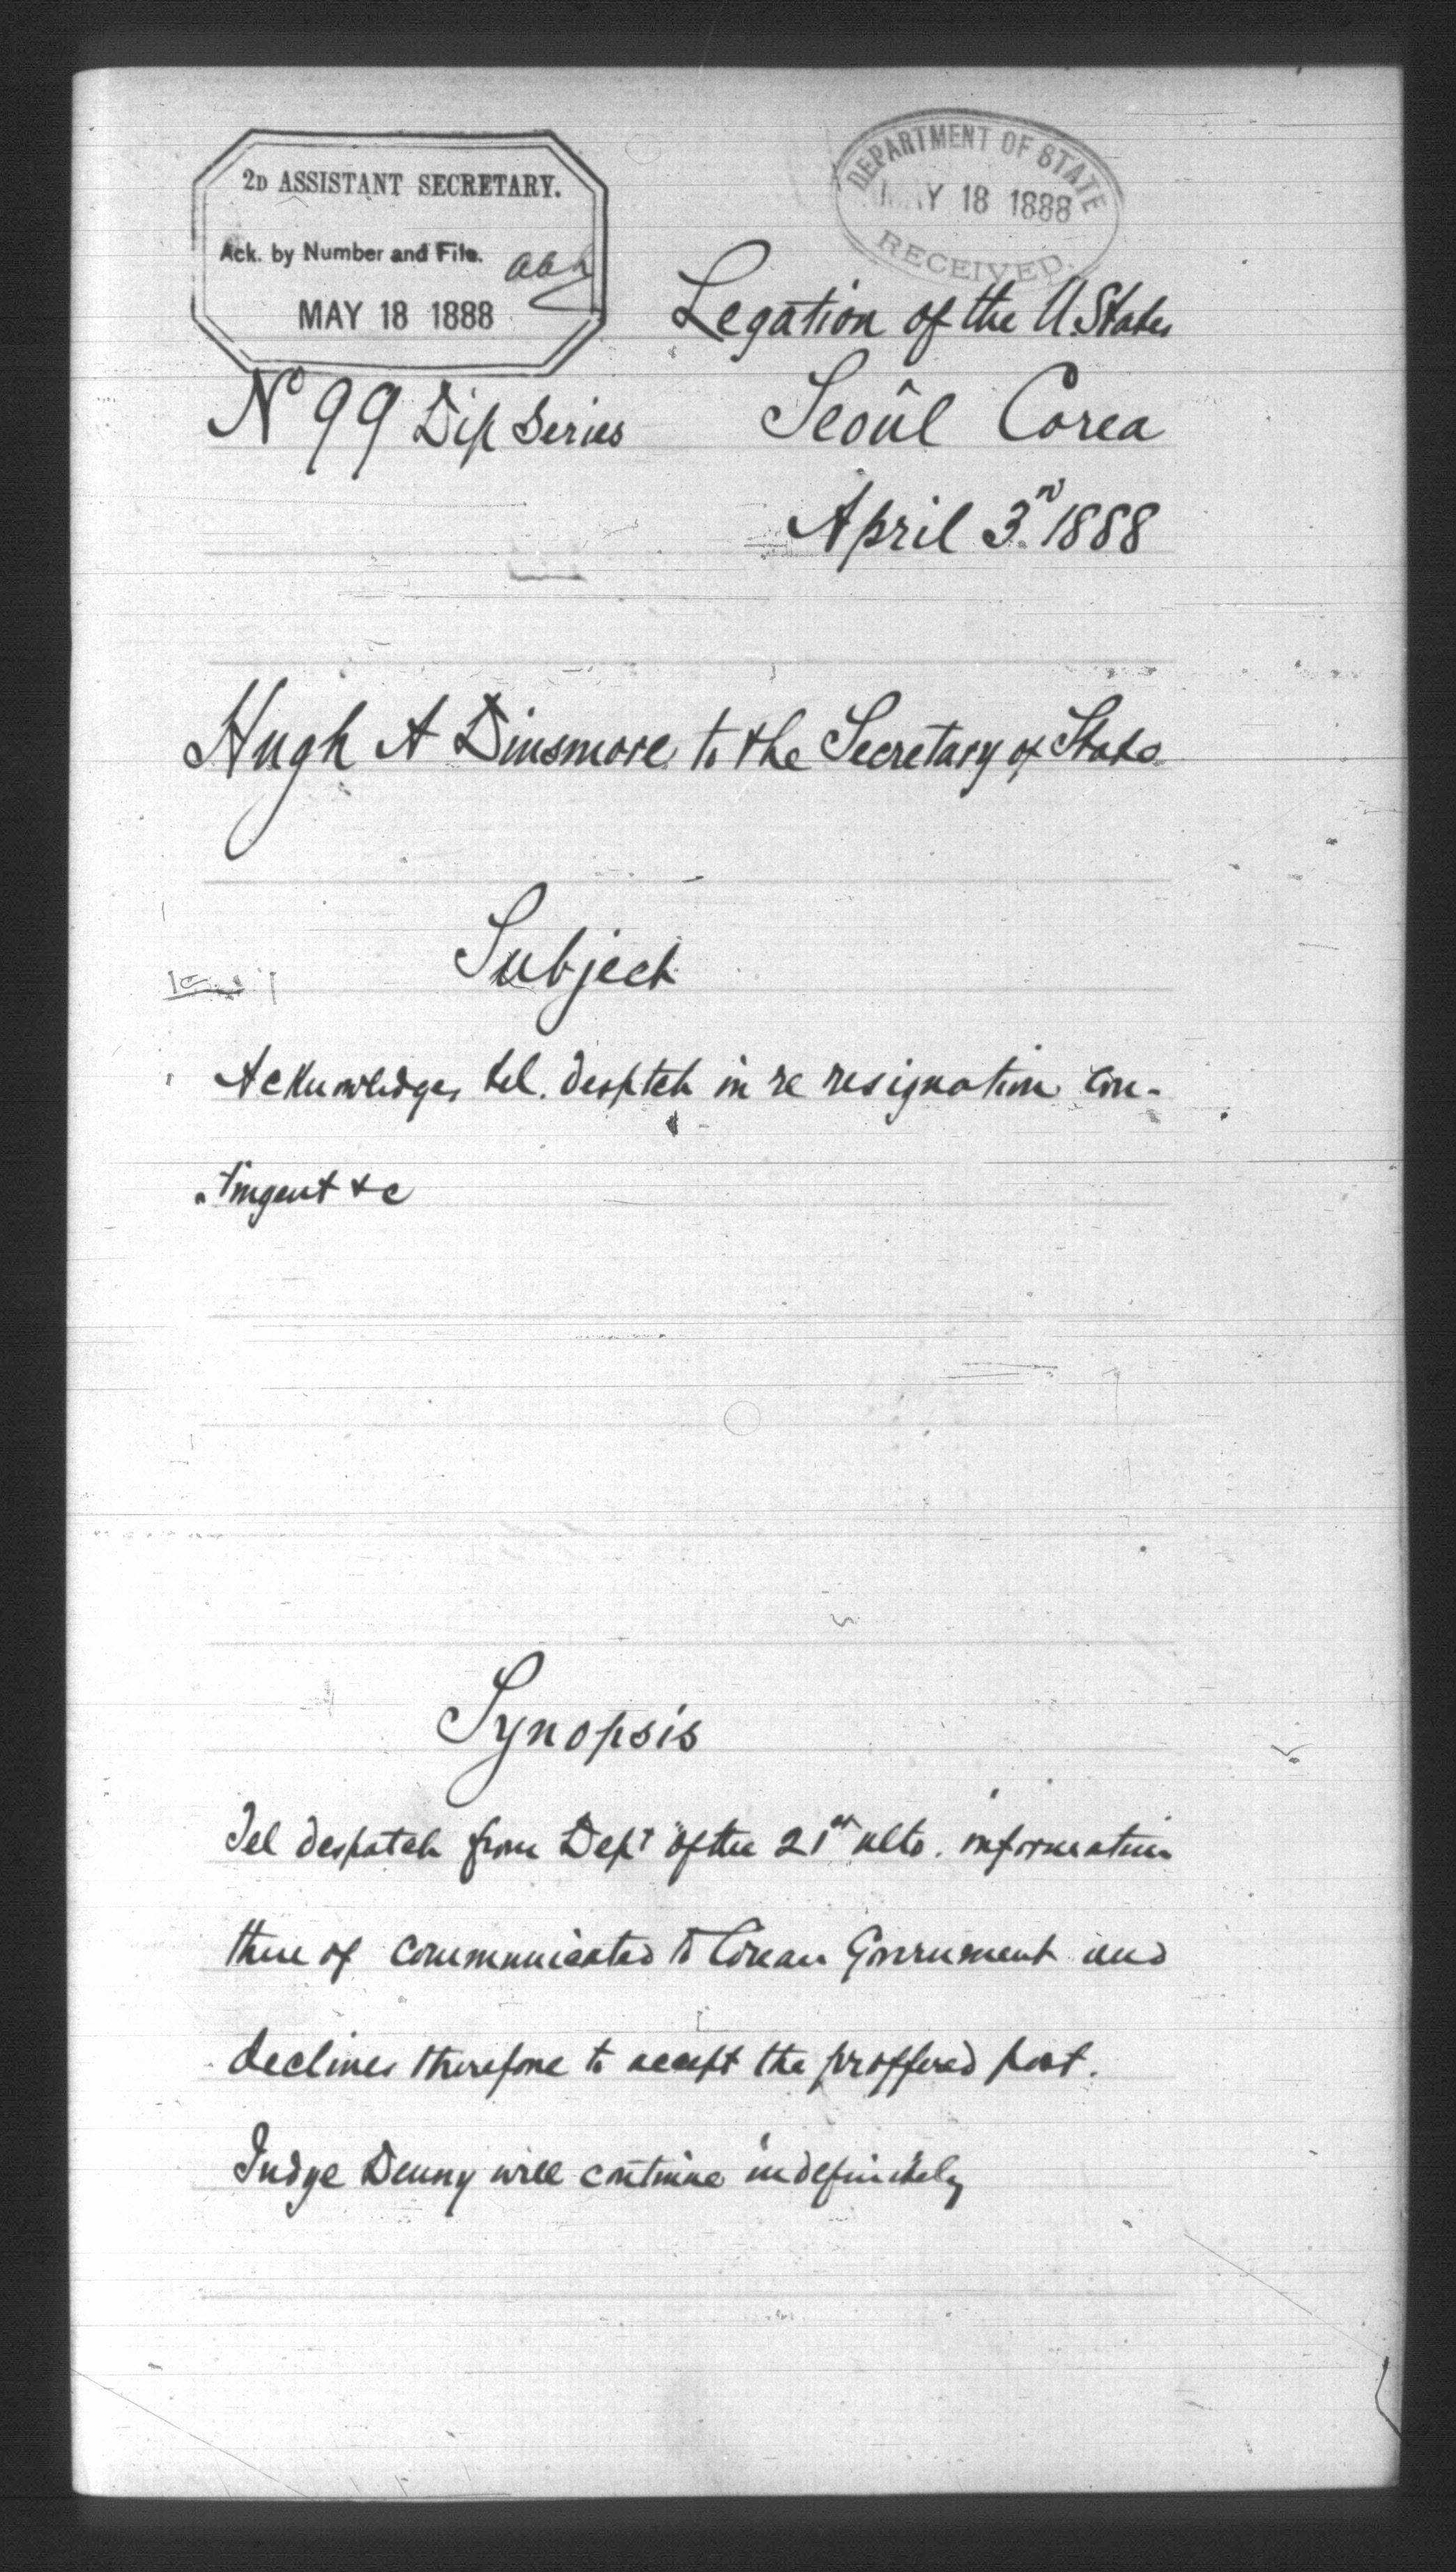 2D ASSISTANT SECRETARY.
Ack. by Number and File.
MAY 18 1888
DEPARTMENT OF STATE
MAY 18 1888
RECEIVED.
Legation of the U. States
Seoûl Corea
Nº 99 Dip Series
April 3rd 1888
Hugh A Dinsmore to the Secretary of State
Subject
Acknowledges tel. desptch in re resignation con-
tingent &c
Synopsis
Tel despatch from Dept of the 21st ulto. information
there of communicated to Corean Government and
declines therefore to accept the proffered post.
Judge Denny will continue indefinitely